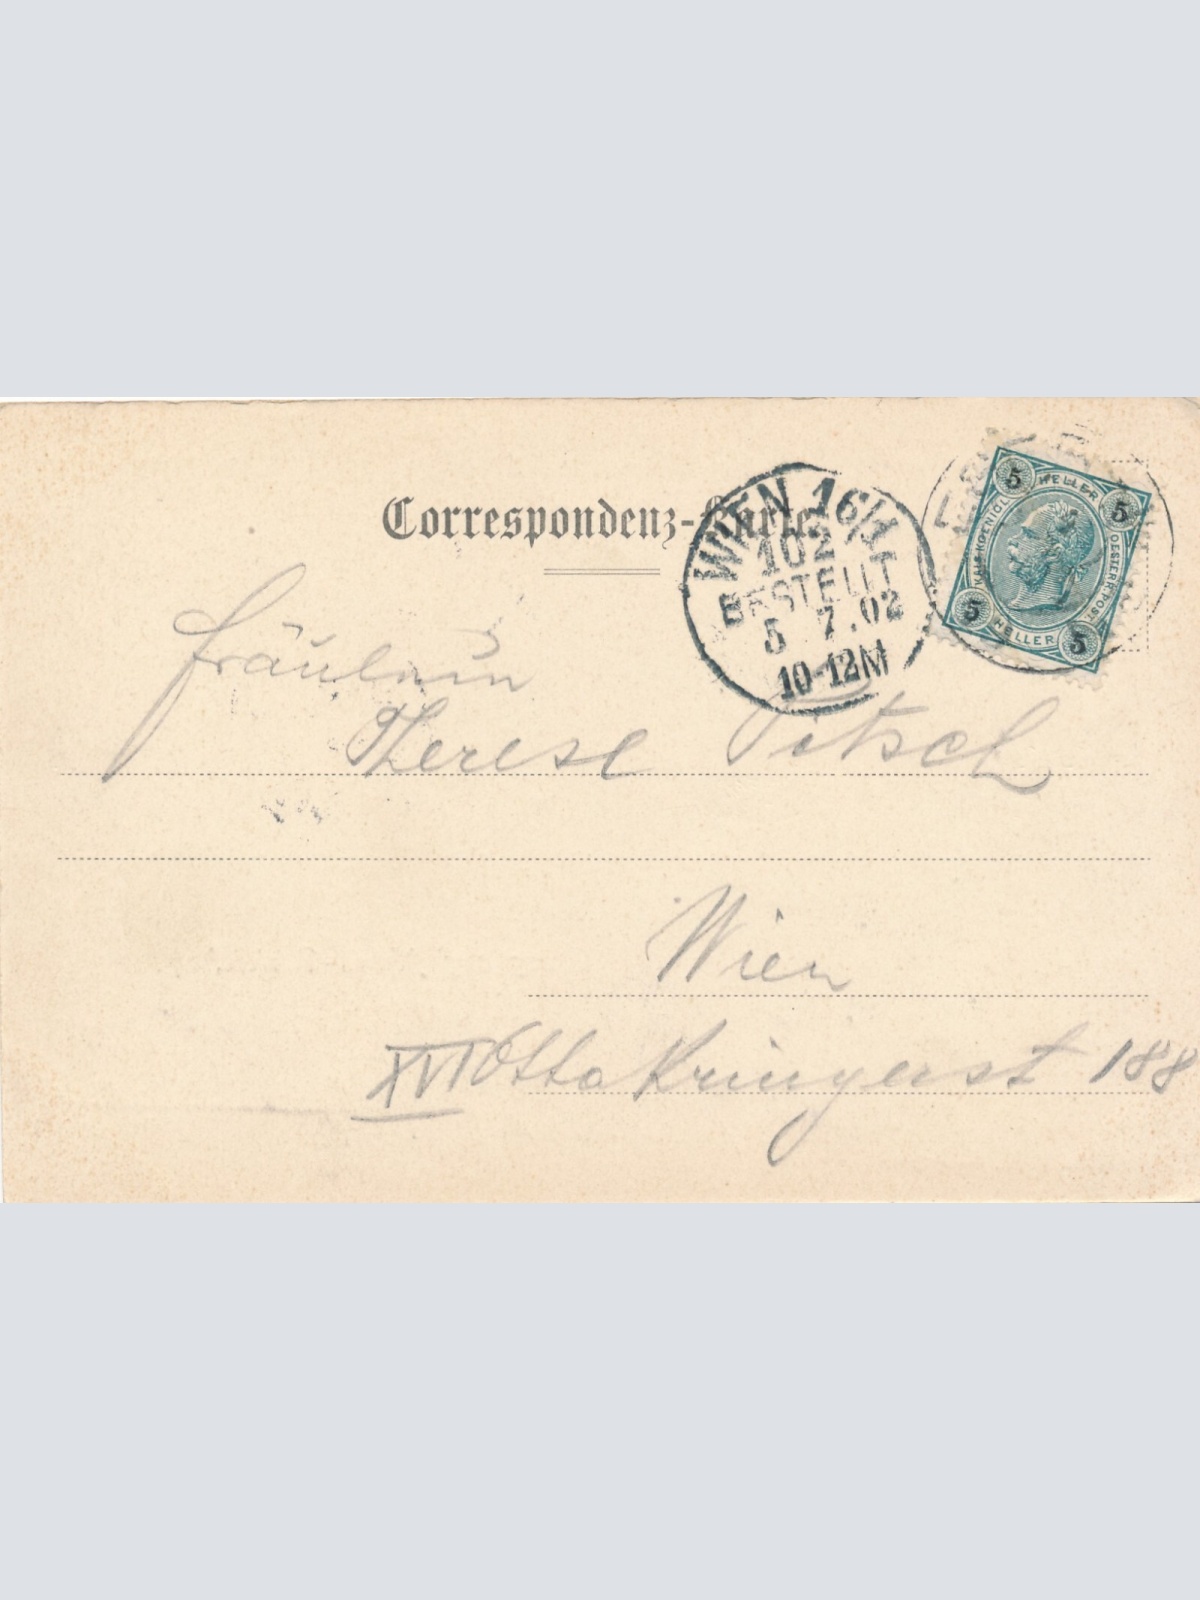 Correspondenz-Karte.
WIEN 16/1
102
BESTELLT
5 7.02
10-12M
5 HELLER 5
KAIS.KOENIGL.
OESTERR.POST
5 HELLER 5
Fräulein
Therese Titsch
Wien
XVI Ottakringerst 188